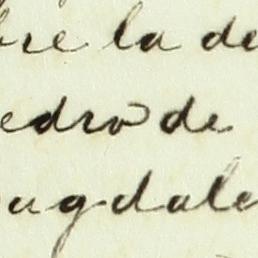 bre la de
edro de
agdale